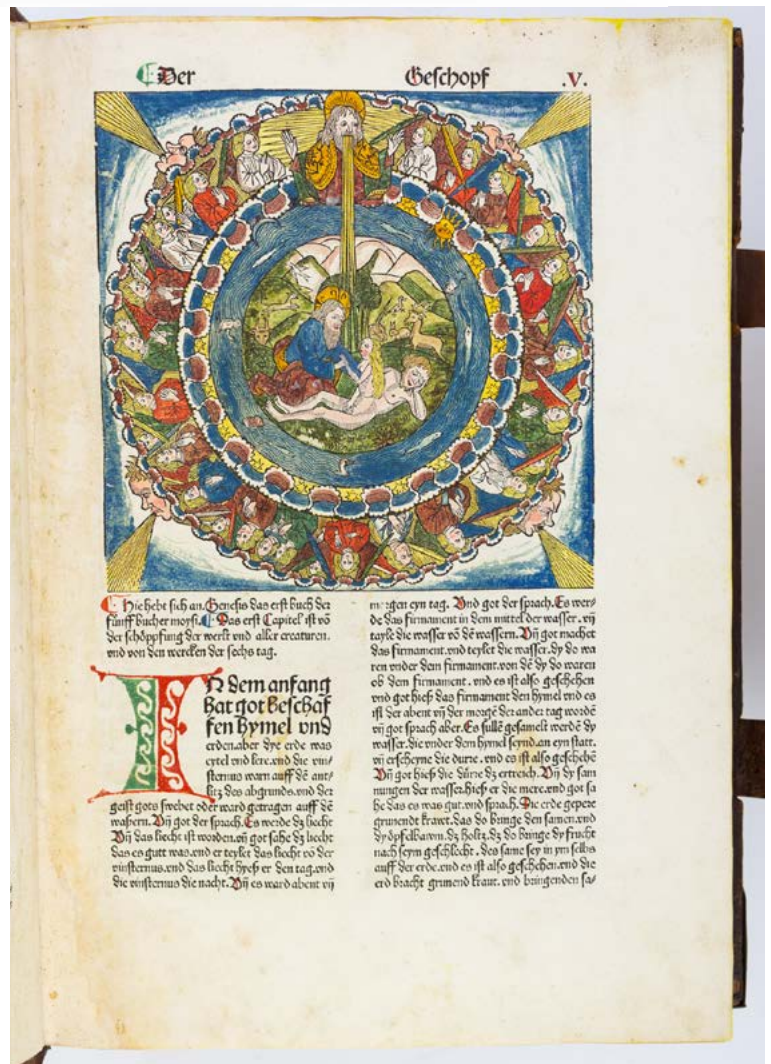 Der Geschopf .V.
Hie hebt sich an. Genesis das erst buch der
fünff bucher moysi. Das erst Capitel ist võ
der schöppfung der werlt vnd aller creaturen.
vnd von den wercken der sechs tag.
IN dem anfang
hat got beschaf
fen hymel vnd
erden. aber dye erde was
eytel vnd lere. vnd die vin-
sternus warn auff dẽ ant-
litz des abgrunds. vnd der
geist gots swebet oder ward getragen auff dẽ
wassern. Vñ got der sprach. Es werde dz liecht
Vñ das liecht ist worden. vñ got sahe dz liecht
das es gutt was. vnd er teylet das liecht võ der
vinsternus. vnd das liecht hyeß er den tag. vnd
die vinsternus die nacht. Vñ es ward abent vñ
morgen eyn tag. Vnd got der sprach. Es wer-
de das firmament in dem mittel der wasser. vñ
tayle die wasser võ dẽ wassern. Vñ got machet
das firmament. vnd teylet die wasser. dy do wa
ren vnder dem firmament. von dẽ dy do waren
ob dem firmament. vnd es ist also geschehen
vnd got hieß das firmament den hymel vnd es
ist der abent vñ der morgẽ der ander tag wordẽ
vñ got sprach aber. Es sullẽ gesamelt werdẽ dy
wasser. die vnder dem hymel seynd. an eyn statt.
vñ erscheyne die durre. vnd es ist also geschehẽ
Vñ got hieß die dürre dz ertreich. Vñ dy sam
nungen der wasser. hieß er die mere. vnd got sa
he das es was gut. vnd sprach. Die erde gepere
grunendt krawt. das do bringe den samen. vnd
dy öpfelbawm. dz holtz. dz do bringe dy frucht
nach seym geschlecht. des same sey in ym selbs
auff der erde. vnd es ist also geschehen. vnd die
erd bracht grunend kraut. vnd bringenden sa-